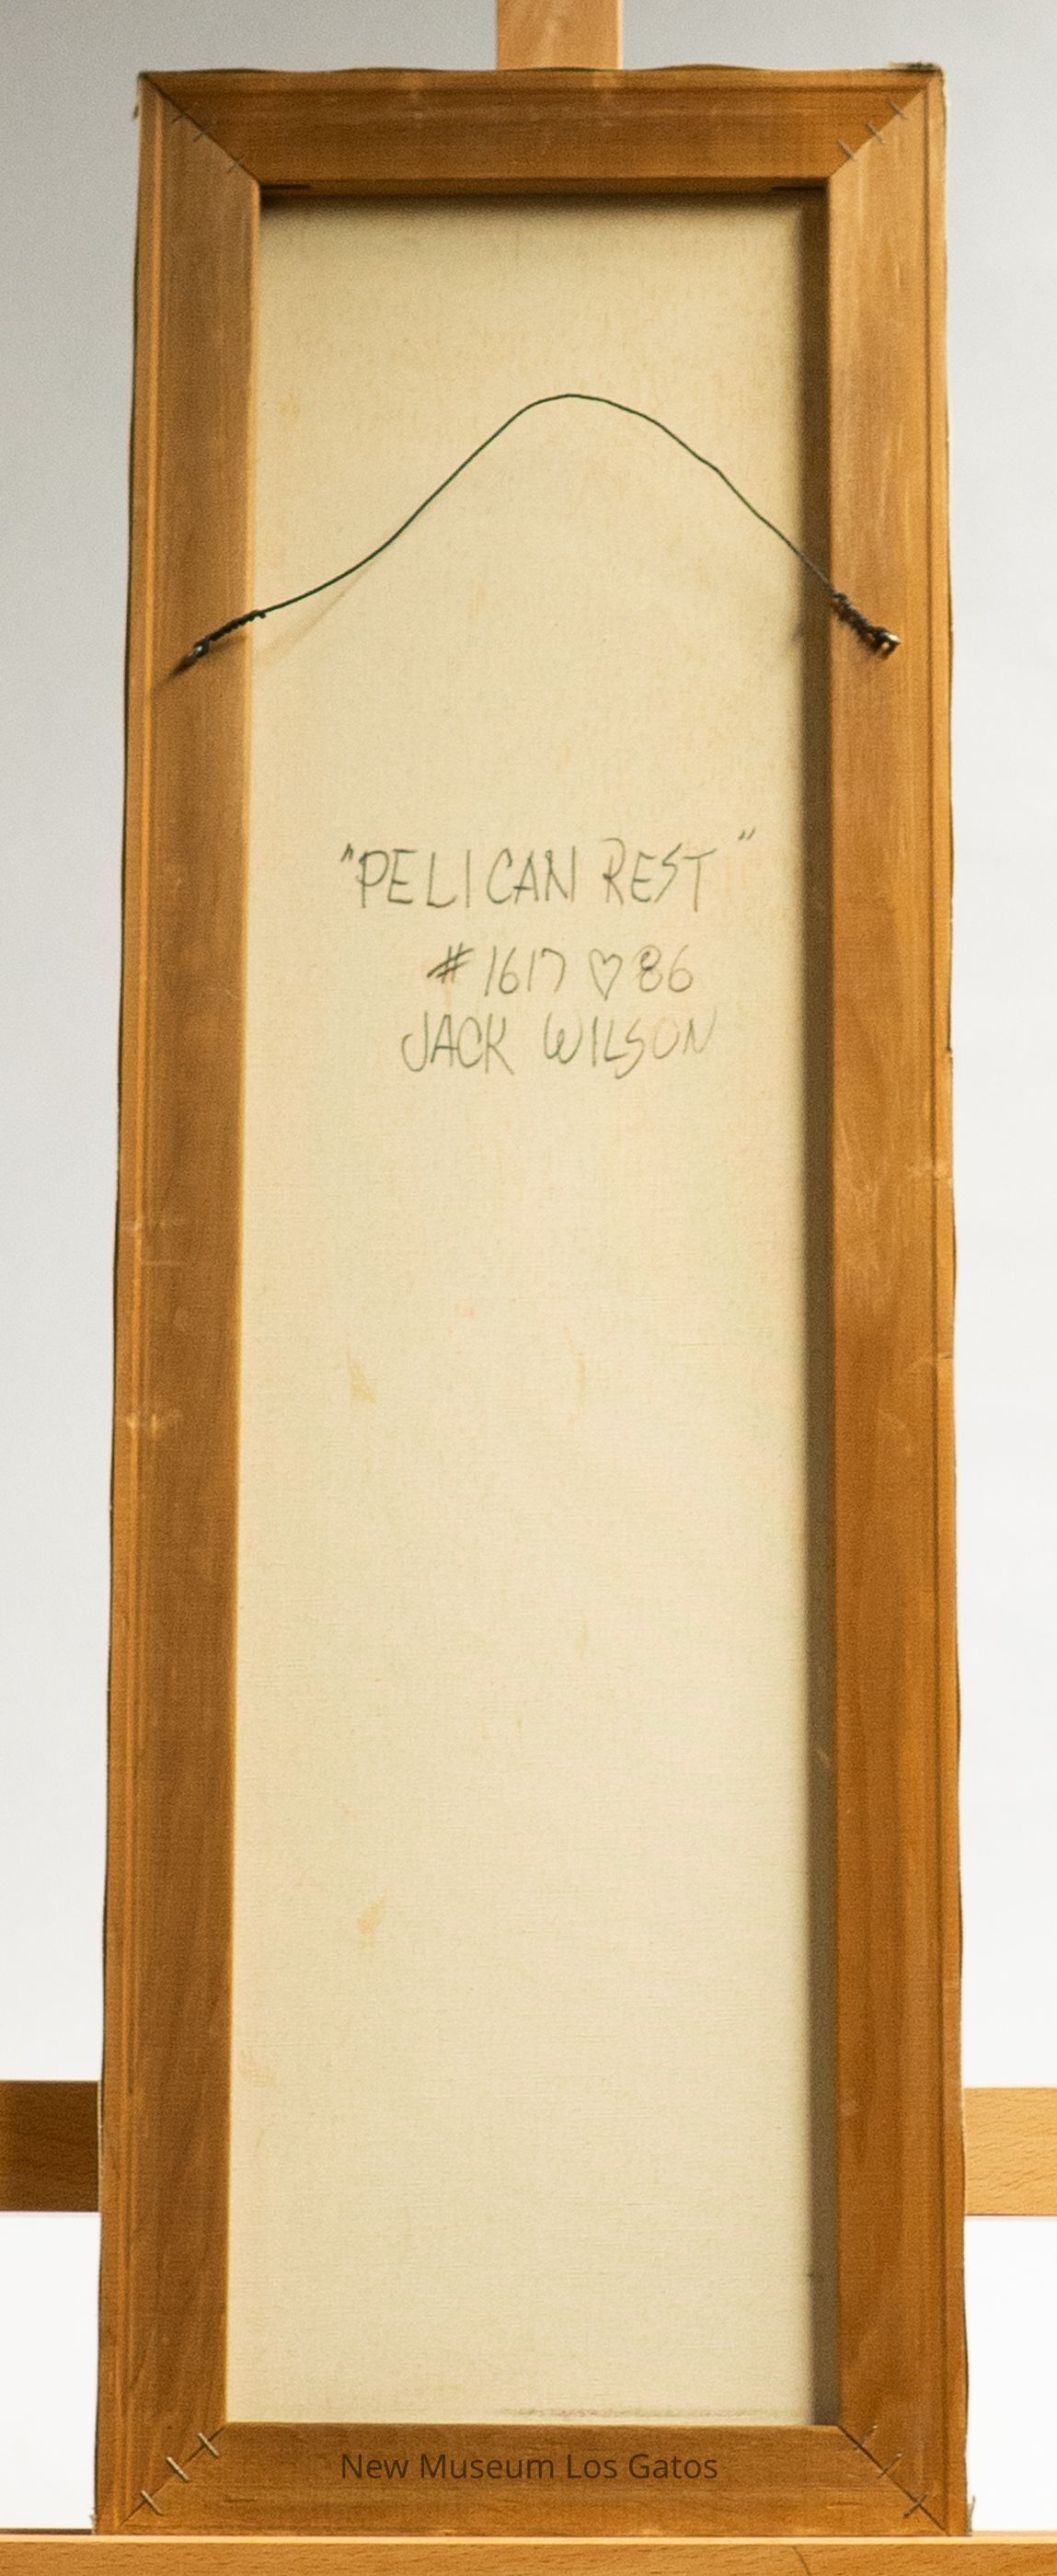 "PELICAN REST"
#1617 ♡ 86
JACK WILSON
New Museum Los Gatos